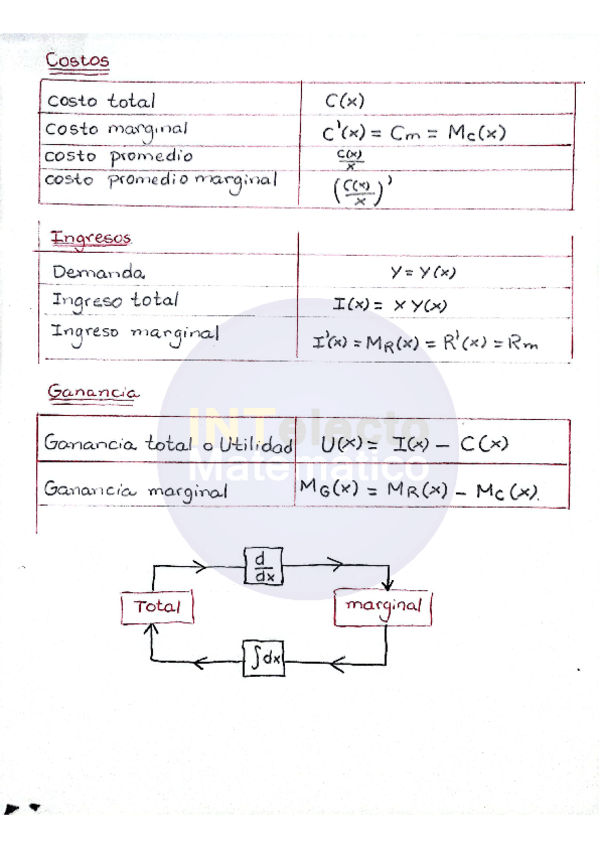 Costos
costo total C(x)
Costo marginal C'(x) = Cm = Mc(x)
costo promedio C(x)/x
costo promedio marginal (C(x)/x)'
Ingresos
Demanda y = y(x)
Ingreso total I(x) = x y(x)
Ingreso marginal I'(x) = MR(x) = R'(x) = Rm
Ganancia
INTelecto
Ganancia total o Utilidad U(x) = I(x) - C(x)
Matemático
Ganancia marginal MG(x) = MR(x) - Mc(x).
d/dx
Total marginal
∫dx